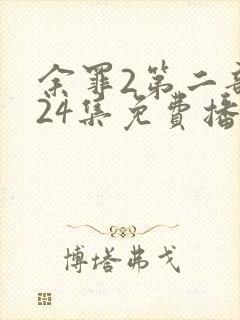 余罪2第二部
24集免費播
博塔弗戈